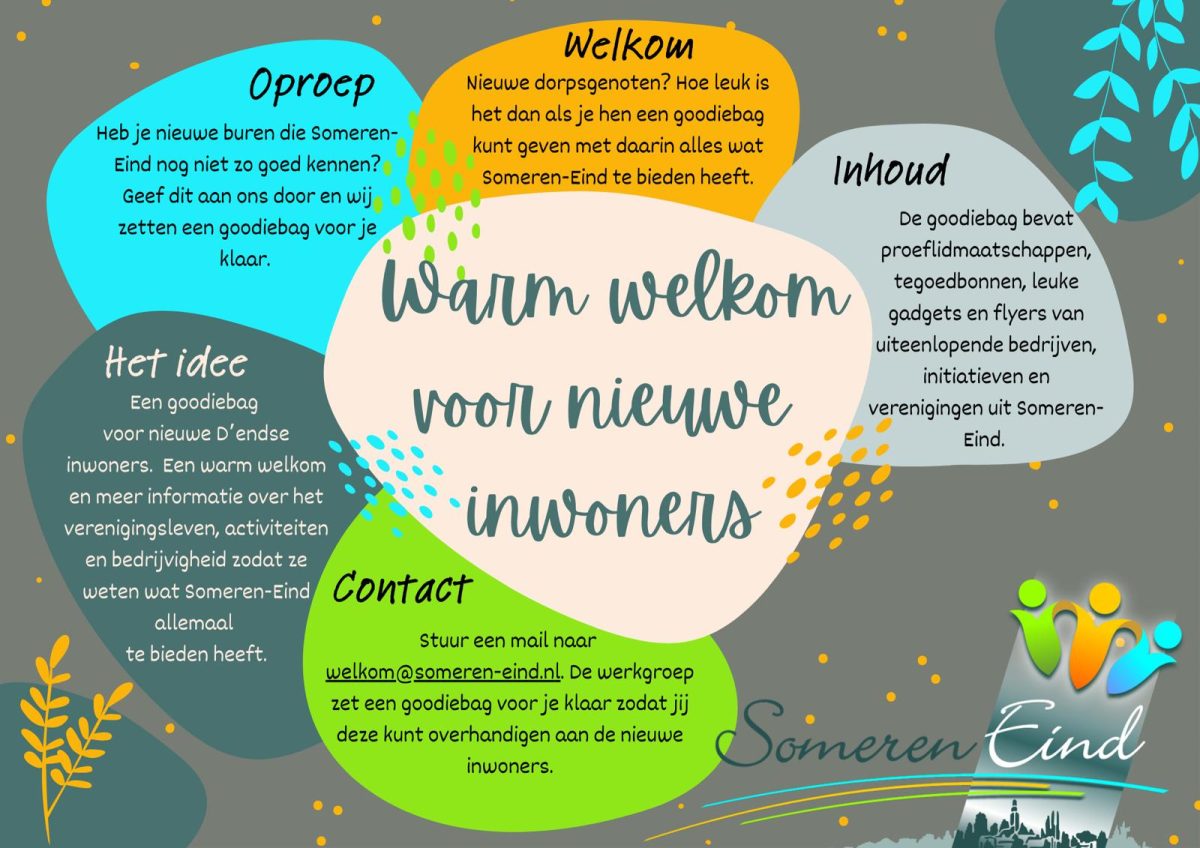 Oproep
Heb je nieuwe buren die Someren-
Eind nog niet zo goed kennen?
Geef dit aan ons door en wij
zetten een goodiebag voor je
klaar.
Welkom
Nieuwe dorpsgenoten? Hoe leuk is
het dan als je hen een goodiebag
kunt geven met daarin alles wat
Someren-Eind te bieden heeft.
Inhoud
De goodiebag bevat
proeflidmaatschappen,
tegoedbonnen, leuke
gadgets en flyers van
uiteenlopende bedrijven,
initiatieven en
verenigingen uit Someren-
Eind.
Warm welkom
voor nieuwe
inwoners
Het idee
Een goodiebag
voor nieuwe D'endse
inwoners. Een warm welkom
en meer informatie over het
verenigingsleven, activiteiten
en bedrijvigheid zodat ze
weten wat Someren-Eind
allemaal
te bieden heeft.
Contact
Stuur een mail naar
welkom@someren-eind.nl. De werkgroep
zet een goodiebag voor je klaar zodat jij
deze kunt overhandigen aan de nieuwe
inwoners.
Someren Eind